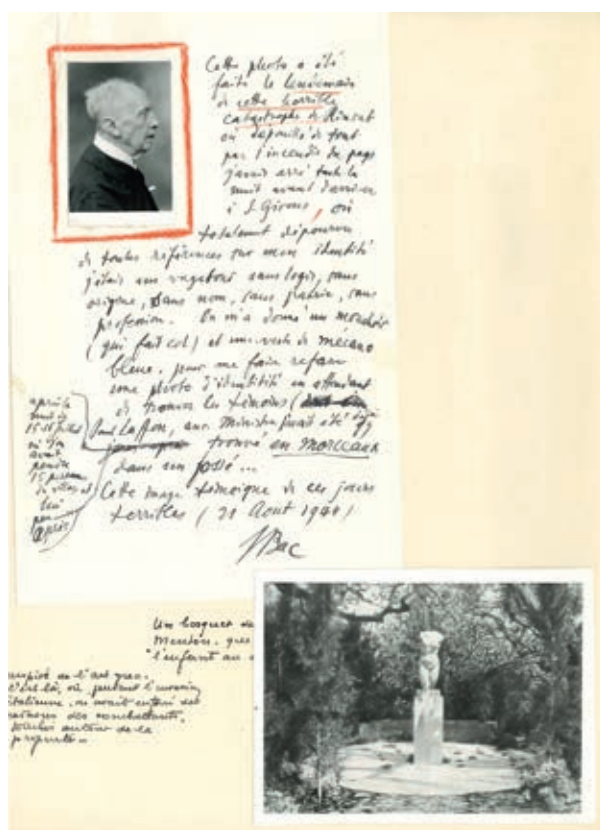 Cette photo a été
faite le lendemain
de cette horrible
catastrophe de Rimont
où dépouillé de tout
par l'incendie du pays
j'avais erré toute la
nuit avant d'arriver
à St Girons, où
totalement dépourvu
de toutes références sur mon identité
j'étais un vagabond sans logis, sans
origine, sans nom, sans patrie, sans
profession. On m'a donné un mouchoir
(qui fait col) et une veste de mécano
bleue, pour me faire refaire
une photo d'identité en attendant
de trouver les témoins (
Paul Laffon, anc. ministre avait été déjà
trouvé en morceaux
dans un fossé...
Cette image témoigne de ces jours
terribles (21 Aout 1944)
Bac
après la
nuit de
où l'on
avait
15
de
peu
après
Un bosquet de
Menton. que
"l'enfant au
de l'art grec.
C'est là, où pendant l'invasion
italienne, on avait enterré des
des combattants,
autour de la
propriété.